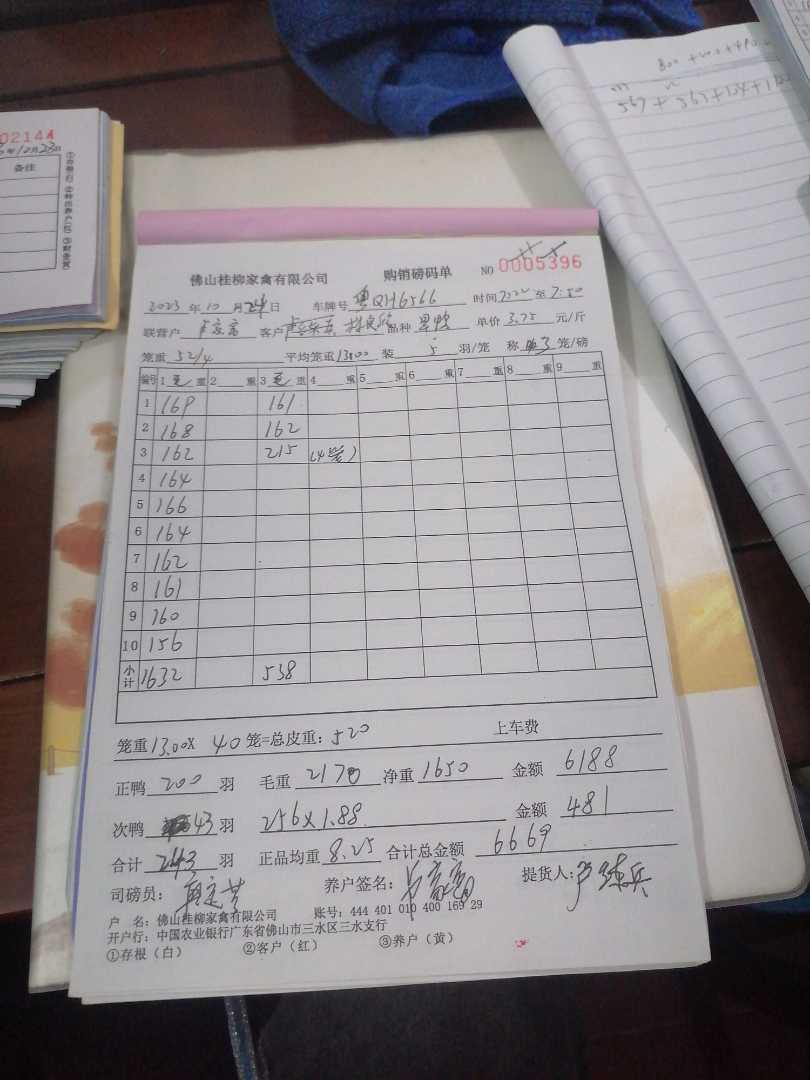 02144
10月23日
备注
①存根(白) ②种出养户(红) ③财务(黄)
800 + 400 + 490
567 + 565 + 124 + 1
佛山桂柳家禽有限公司 购销磅码单 NO 0005396
2023 年 10 月 24 日 车牌号 粤QH6566 时间 7:22 至 7:50
联营户 客户 品种 单价 3.75 元/斤
笼重 52/4 平均笼重 13.00 装 5 羽/笼 称 3 笼/磅
编号 1 毛 重 2 重 3 毛 重 4 重 5 重 6 重 7 重 8 重 9 重
1 169 161
2 168 162
3 162 215 (4笼)
4 164
5 166
6 164
7 162
8 161
9 160
10 156
小计 1632 538
笼重 13.00 X 40 笼=总皮重: 520 上车费
正鸭 200 羽 毛重 2170 净重 1650 金额 6188
次鸭 43 羽 256 X 1.88 金额 481
合计 243 羽 正品均重 8.25 合计总金额 6669
司磅员: 养户签名: 提货人:
户 名: 佛山桂柳家禽有限公司 账号: 444 401 010 400 169 29
开户行: 中国农业银行广东省佛山市三水区三水支行
①存根(白) ②客户(红) ③养户(黄)